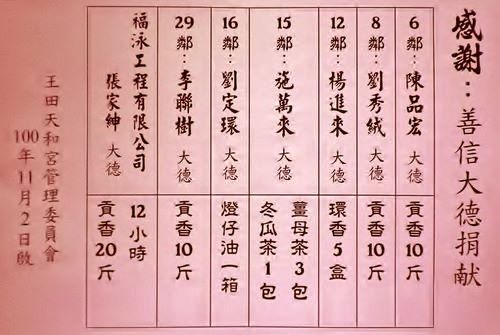 感謝：善信大德捐献
6鄰：陳品宏 大德
貢香10斤
8鄰：劉秀絨 大德
貢香10斤
12鄰：楊進來 大德
環香5盒
15鄰：施萬來 大德
薑母茶3包
冬瓜茶1包
16鄰：劉定環 大德
燈仔油一箱
29鄰：李聯樹 大德
貢香10斤
福泳工程有限公司
張家紳 大德
12小時
貢香20斤
王田天和宮管理委員會
100年11月2日啟